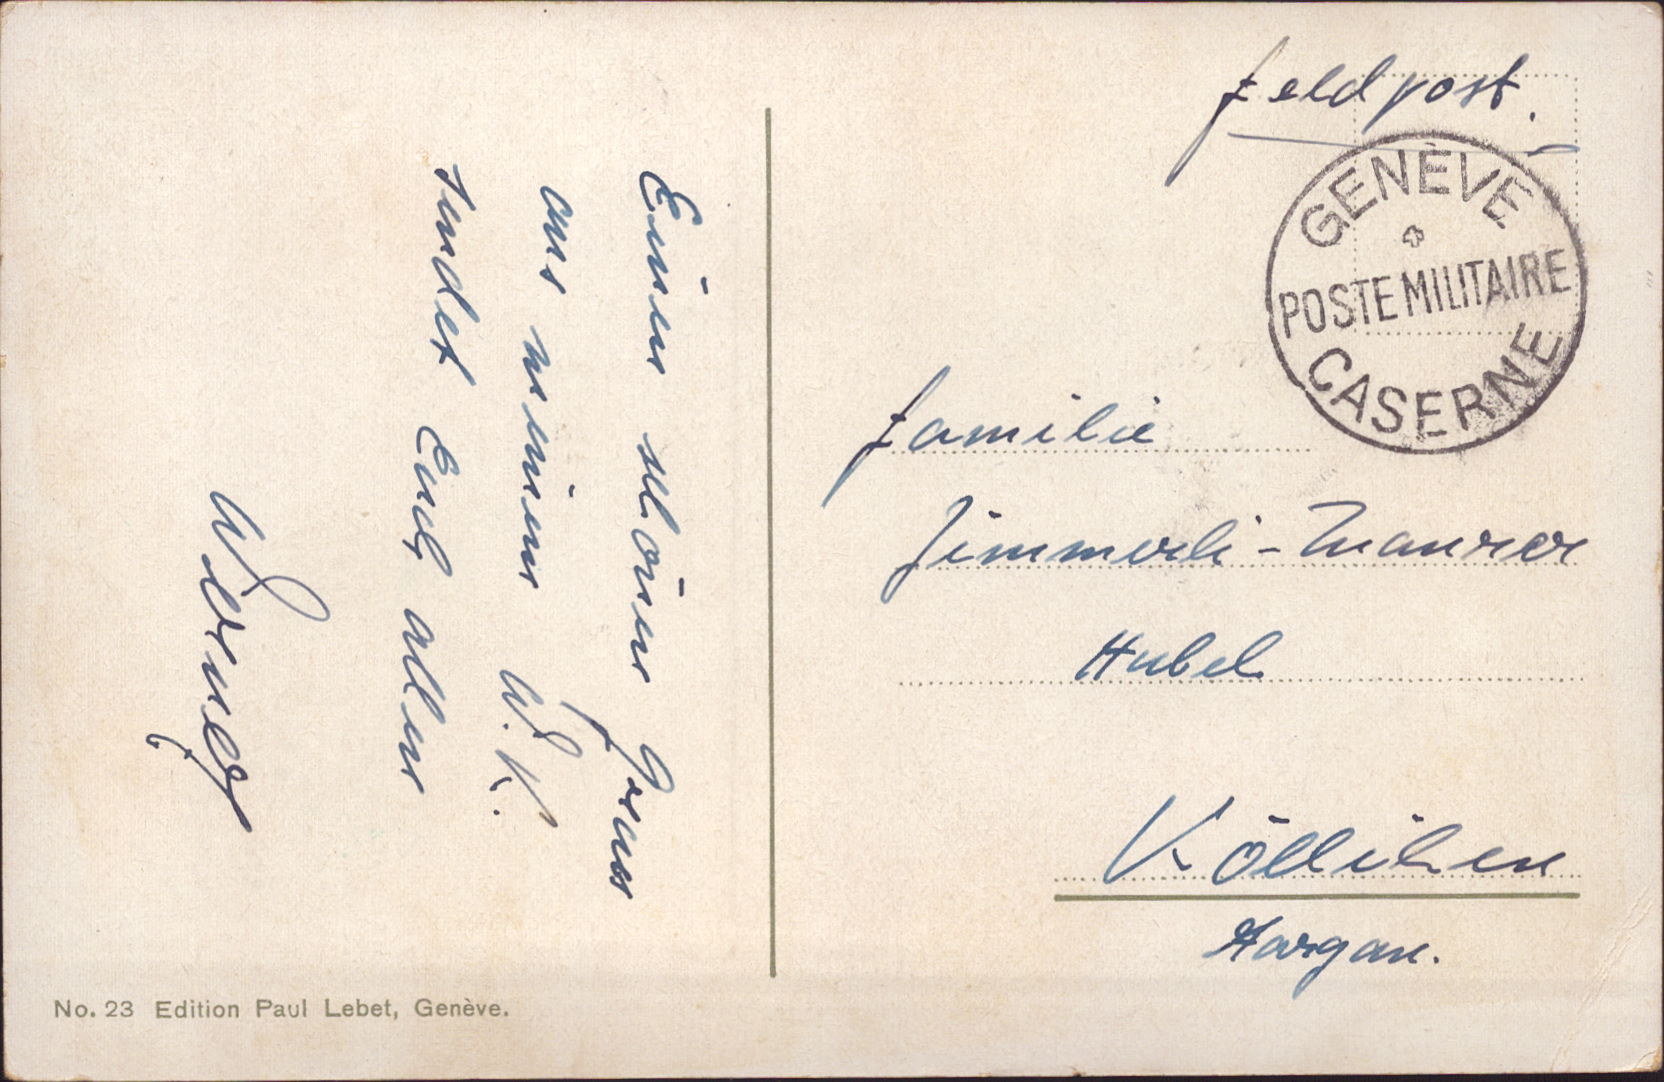 Einen schönen Gruss
aus meinem W.K.
sendet Euch allen
Werner
Feldpost.
GENÈVE
POSTE MILITAIRE
CASERNE
Familie
Zimmerli-Maurer
Hubel
Kölliken
Aargau.
No. 23 Edition Paul Lebet, Genève.